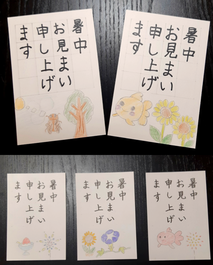 暑中
お見まい
申し上げ
ます
暑中
お見まい
申し上げ
ます
暑中
お見まい
申し上げ
ます
暑中
お見まい
申し上げ
ます
暑中
お見まい
申し上げ
ます